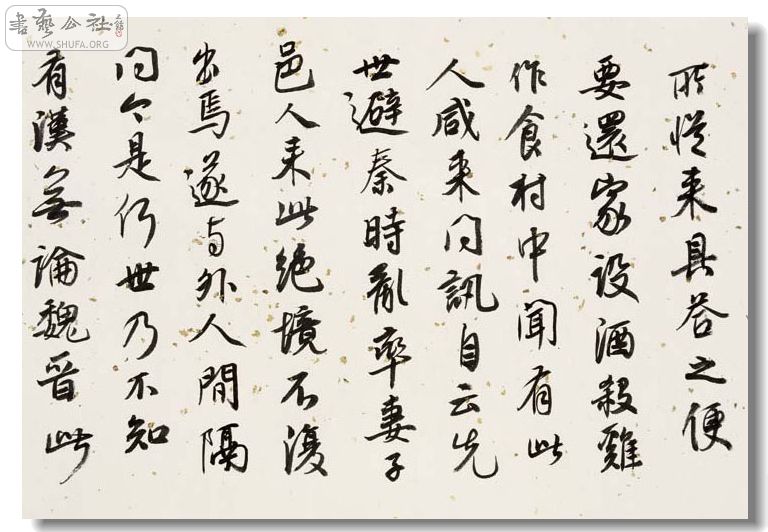 所從来具答之便
要還家設酒殺雞
作食村中聞有此
人咸来問訊自云先
世避秦時亂率妻子
邑人来此絕境不復
出焉遂与外人間隔
問今是何世乃不知
有漢無論魏晉此
書藝公社
WWW.SHUFA.ORG